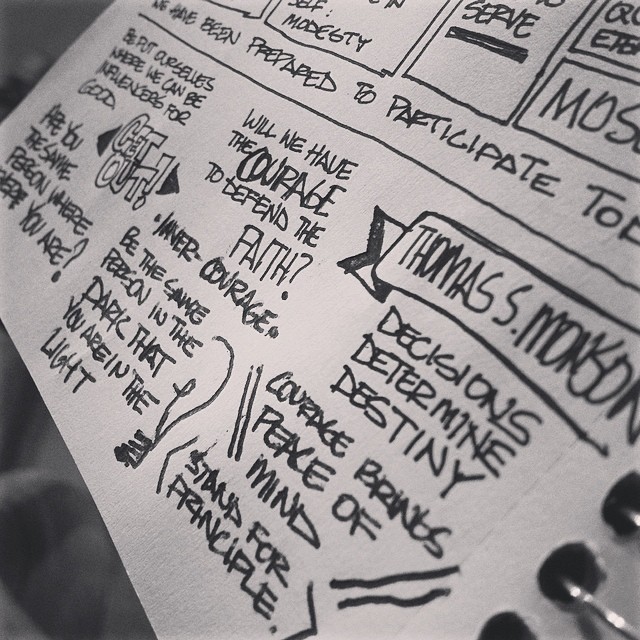 SELF.
MODESTY
SERVE
MOS
WE HAVE BEEN PREPARED TO PARTICIPATE
BE PUT OURSELVES
WHERE WE CAN BE
INFLUENCERS FOR
GOD
GET
OUT!
ARE YOU
THE SAME
PERSON WHERE
WERE YOU ARE?
WILL WE HAVE
THE COURAGE
TO DEFEND THE
FAITH?
• INNER COURAGE.
BE THE SAME
PERSON IN THE
DARK THAT
YOU ARE IN THE
LIGHT
THOMAS S. MONSON
DECISIONS
DETERMINE
DESTINY
COURAGE BRINGS
PEACE OF
MIND
STAND FOR
PRINCIPLE.